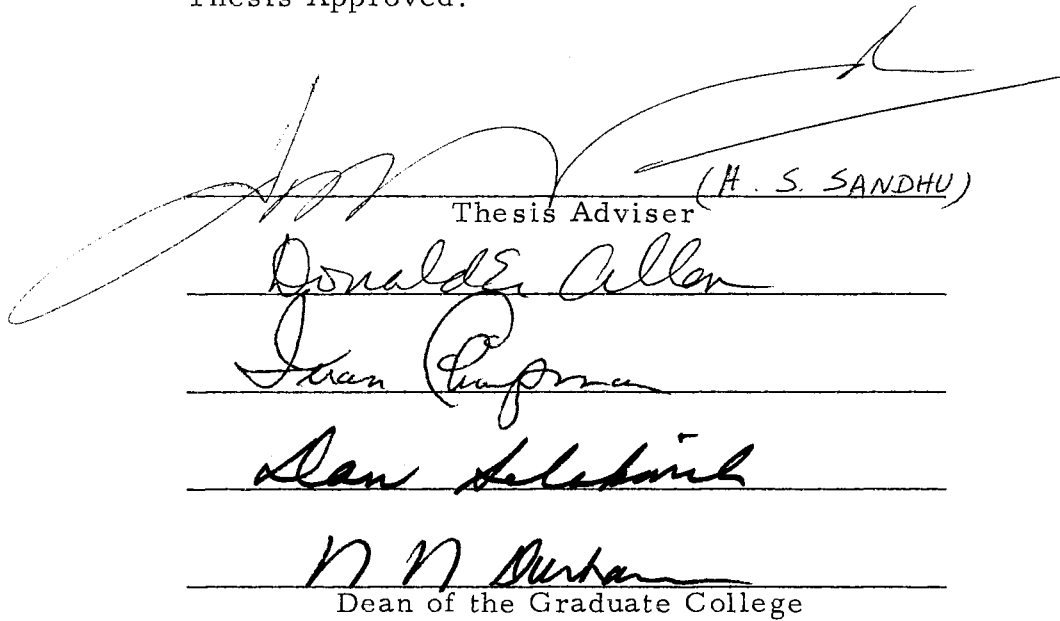 Thesis Approved:
(H. S. SANDHU)
Thesis Adviser
Donald E. Allen
Ivan Chapman
Dan Selakovich
N N Durham
Dean of the Graduate College